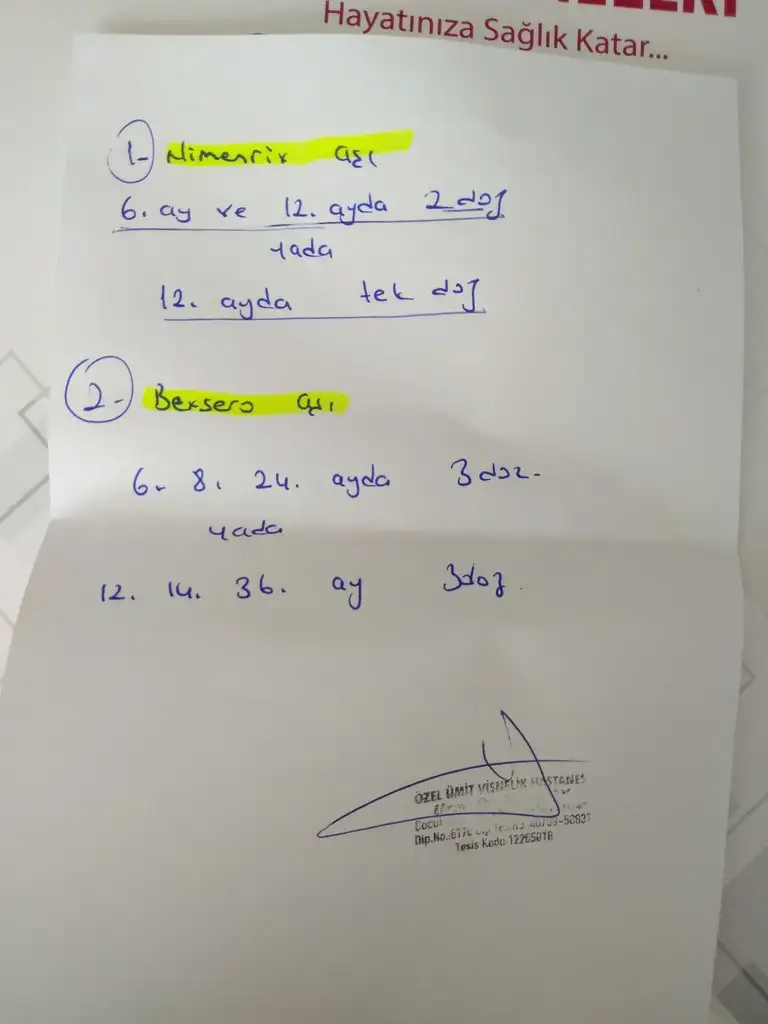 Hayatınıza Sağlık Katar...
1- Nimenrix aşı
6. ay ve 12. ayda 2 doz
yada
12. ayda tek doz
2- Bexsero aşı
6. 8. 24. ayda 3 doz.
yada
12. 14. 36. ay 3 doz.
ÖZEL ÜMİT VİŞNELİK HASTANES
Çocuk
Dip.No.
Tesis Kodu 12265018